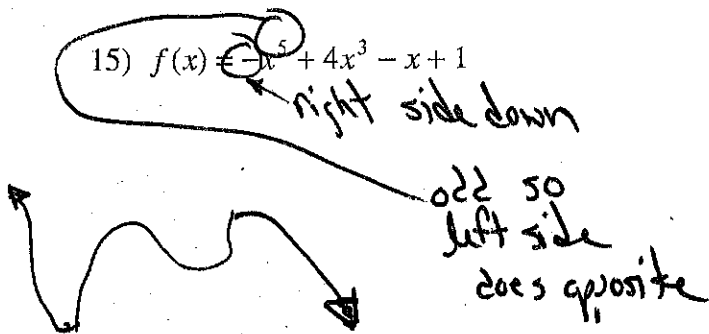 15) f(x) = -x⁵ + 4x³ - x + 1
right side down
odd so
left side
does opposite